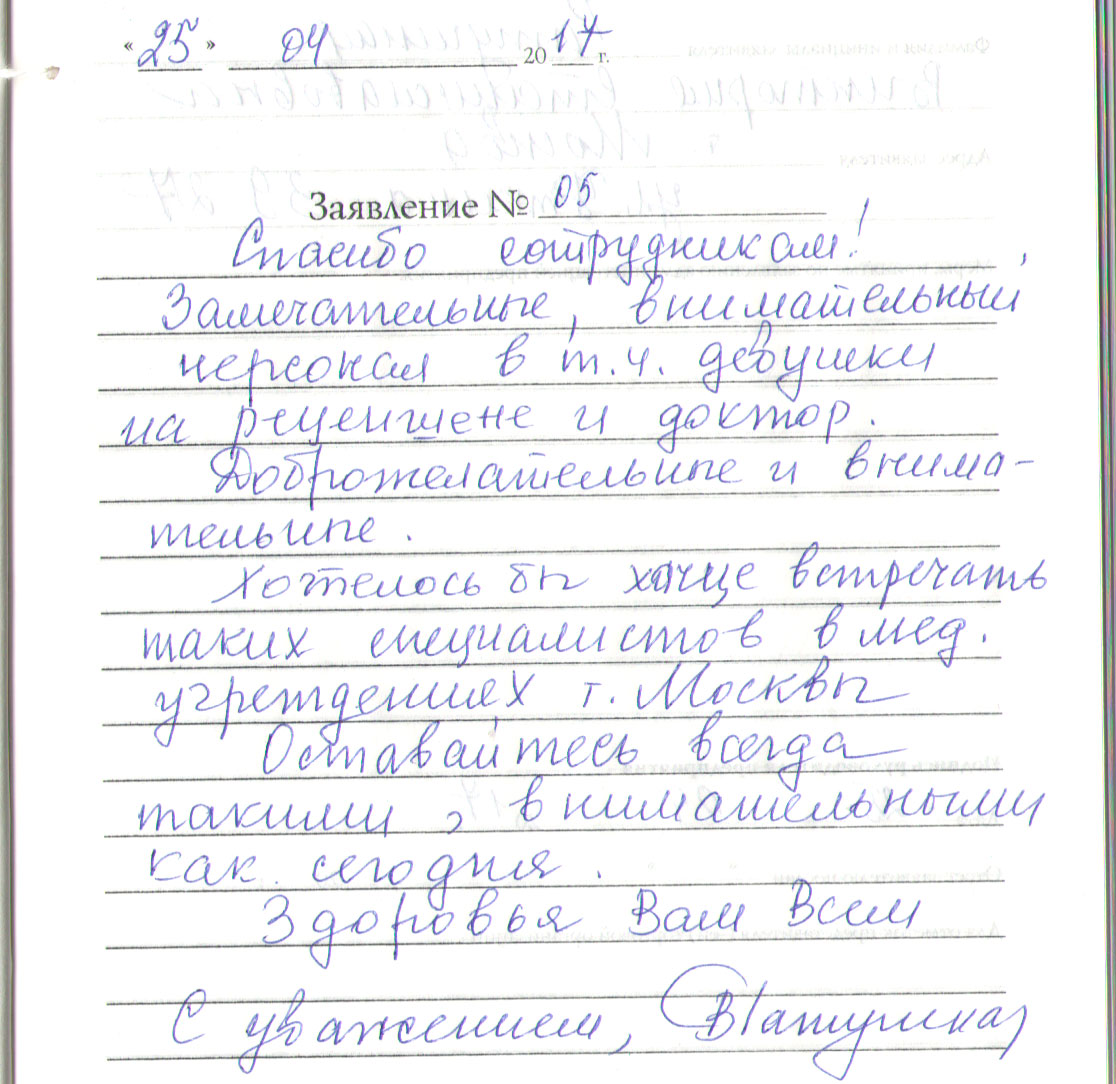 «25» 04 2017 г.
Заявление № 05
Спасибо сотрудникам!
Замечательные, внимательный
персонал в т.ч. девушки
на рецепшене и доктор.
Доброжелательные и внима-
тельные.
Хотелось бы чаще встречать
таких специалистов в мед.
учреждениях г. Москвы
Оставайтесь всегда
такими, внимательными
как сегодня.
Здоровья Вам Всем
С уважением,